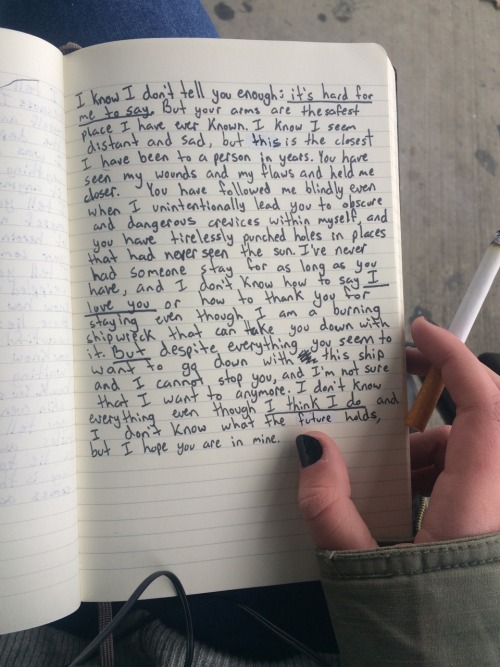 I know I don't tell you enough: it's hard for
me to say. But your arms are the safest
place I have ever known. I know I seem
distant and sad, but this is the closest
I have been to a person in years. You have
seen my wounds and my flaws and held me
closer. You have followed me blindly even
when I unintentionally lead you to obscure
and dangerous crevices within myself, and
you have tirelessly punched holes in places
that had never seen the sun. I've never
had someone stay for as long as you
have, and I don't know how to say I
love you or how to thank you for
staying even though I am a burning
shipwreck that can take you down with
it. But despite everything you seem to
want to go down with this ship
and I cannot stop you, and I'm not sure
that I want to anymore. I don't know
everything even though I think I do and
I don't know what the future holds,
but I hope you are in mine.